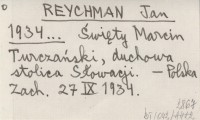 REYCHMAN Jan
1934... Święty Marcin
Turczański, duchowa
stolica Słowacji. – Polska
Zach. 27 IX 1934.